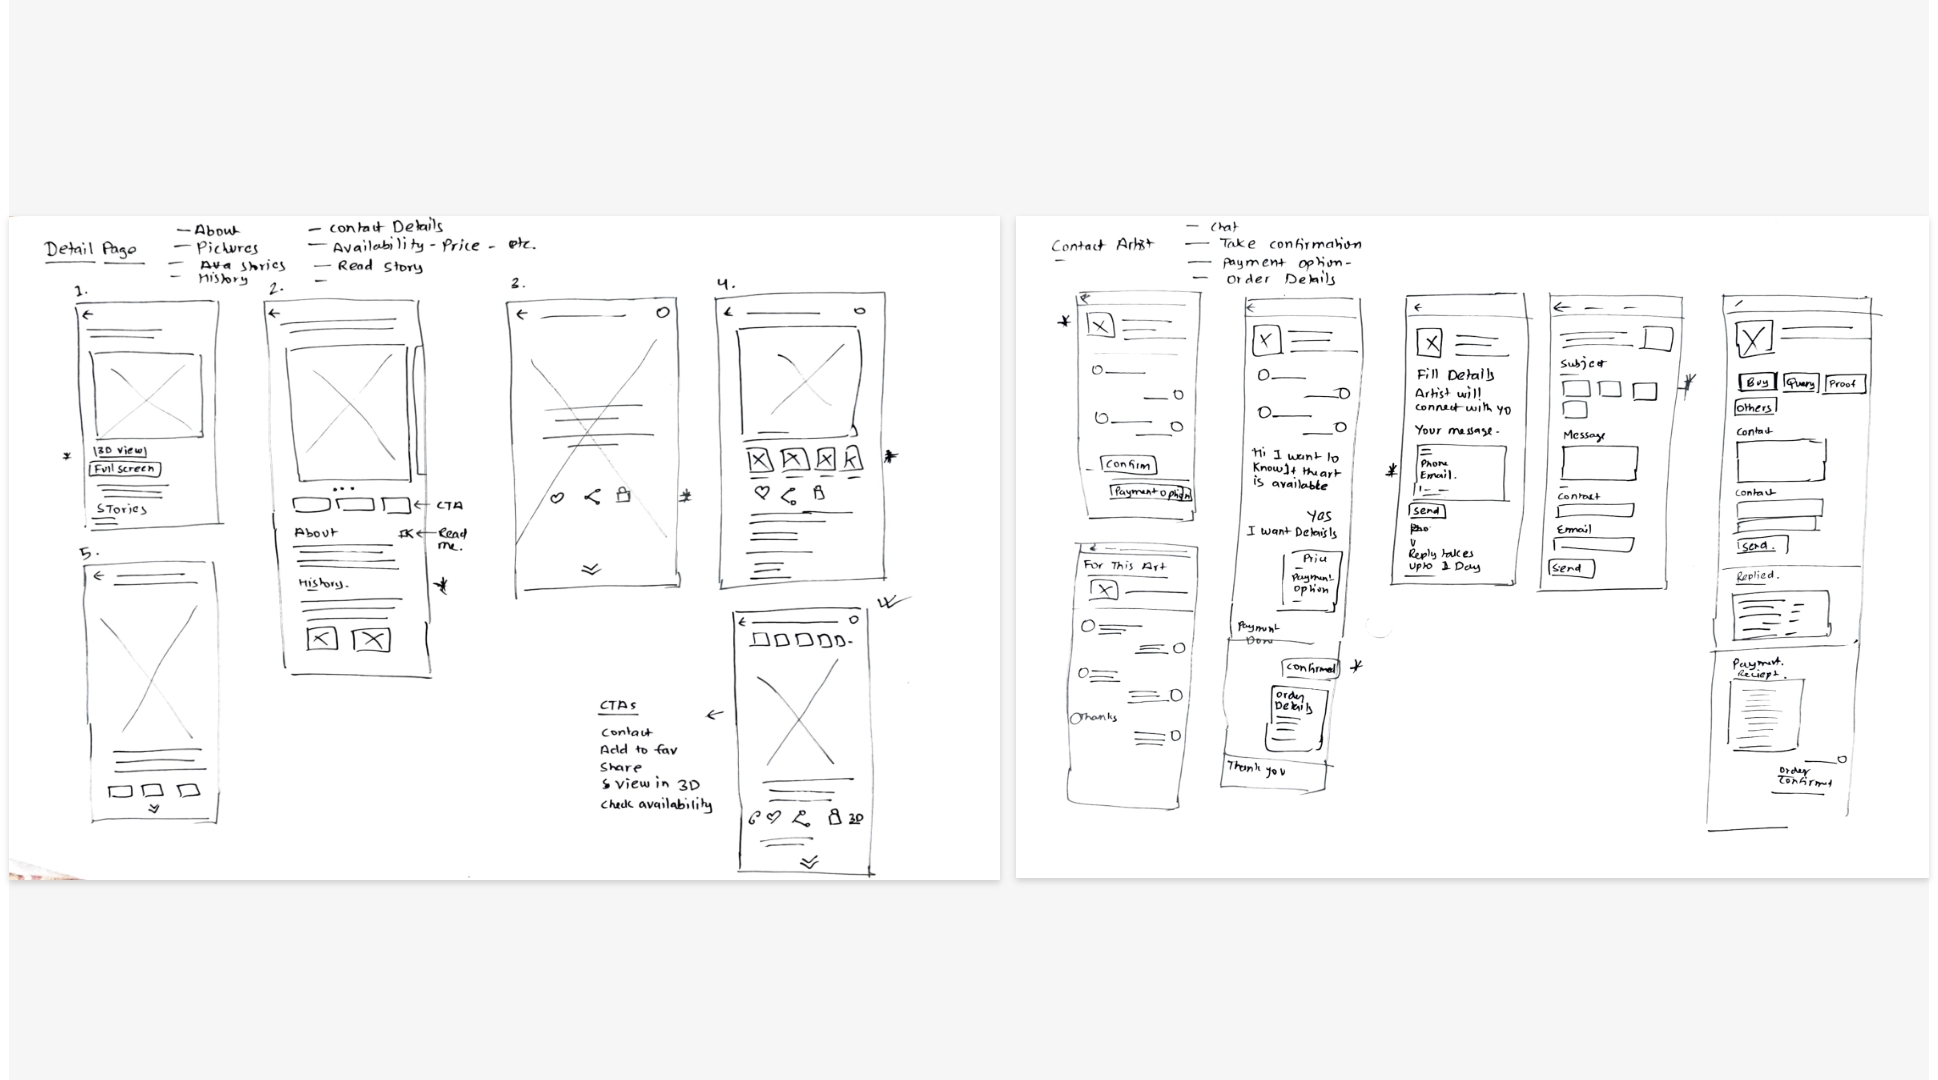 Detail Page
— About
— Pictures
— stories
— History
— contact Details
— Availability - Price - etc.
— Read Story
1.
3D view
Full screen
STories
2.
← CTA
About
← Read me.
History.
3.
4.
5.
CTAs
Contact
Add to fav
Share
view in 3D
check availability
3D
Contact Artist
— chat
— Take confirmation
— Payment option-
— Order Details
Confirm
Payment option
For This Art
Thanks
Hi I want to
know If the art
is available
Yes
I want Details
Payment
option
Payment
Done
Confirmed
Order
Details
Thank you
Fill Details
Artist will
connect with yo
Your message -
Phone
Email.
Send
Reply takes
upto 1 Day
Subject
Message
Contact
Email
Send
Buy
Query
Proof
Others
Contact
Contact
Send.
Replied.
Payment.
Reciept.
Order
Confirmed